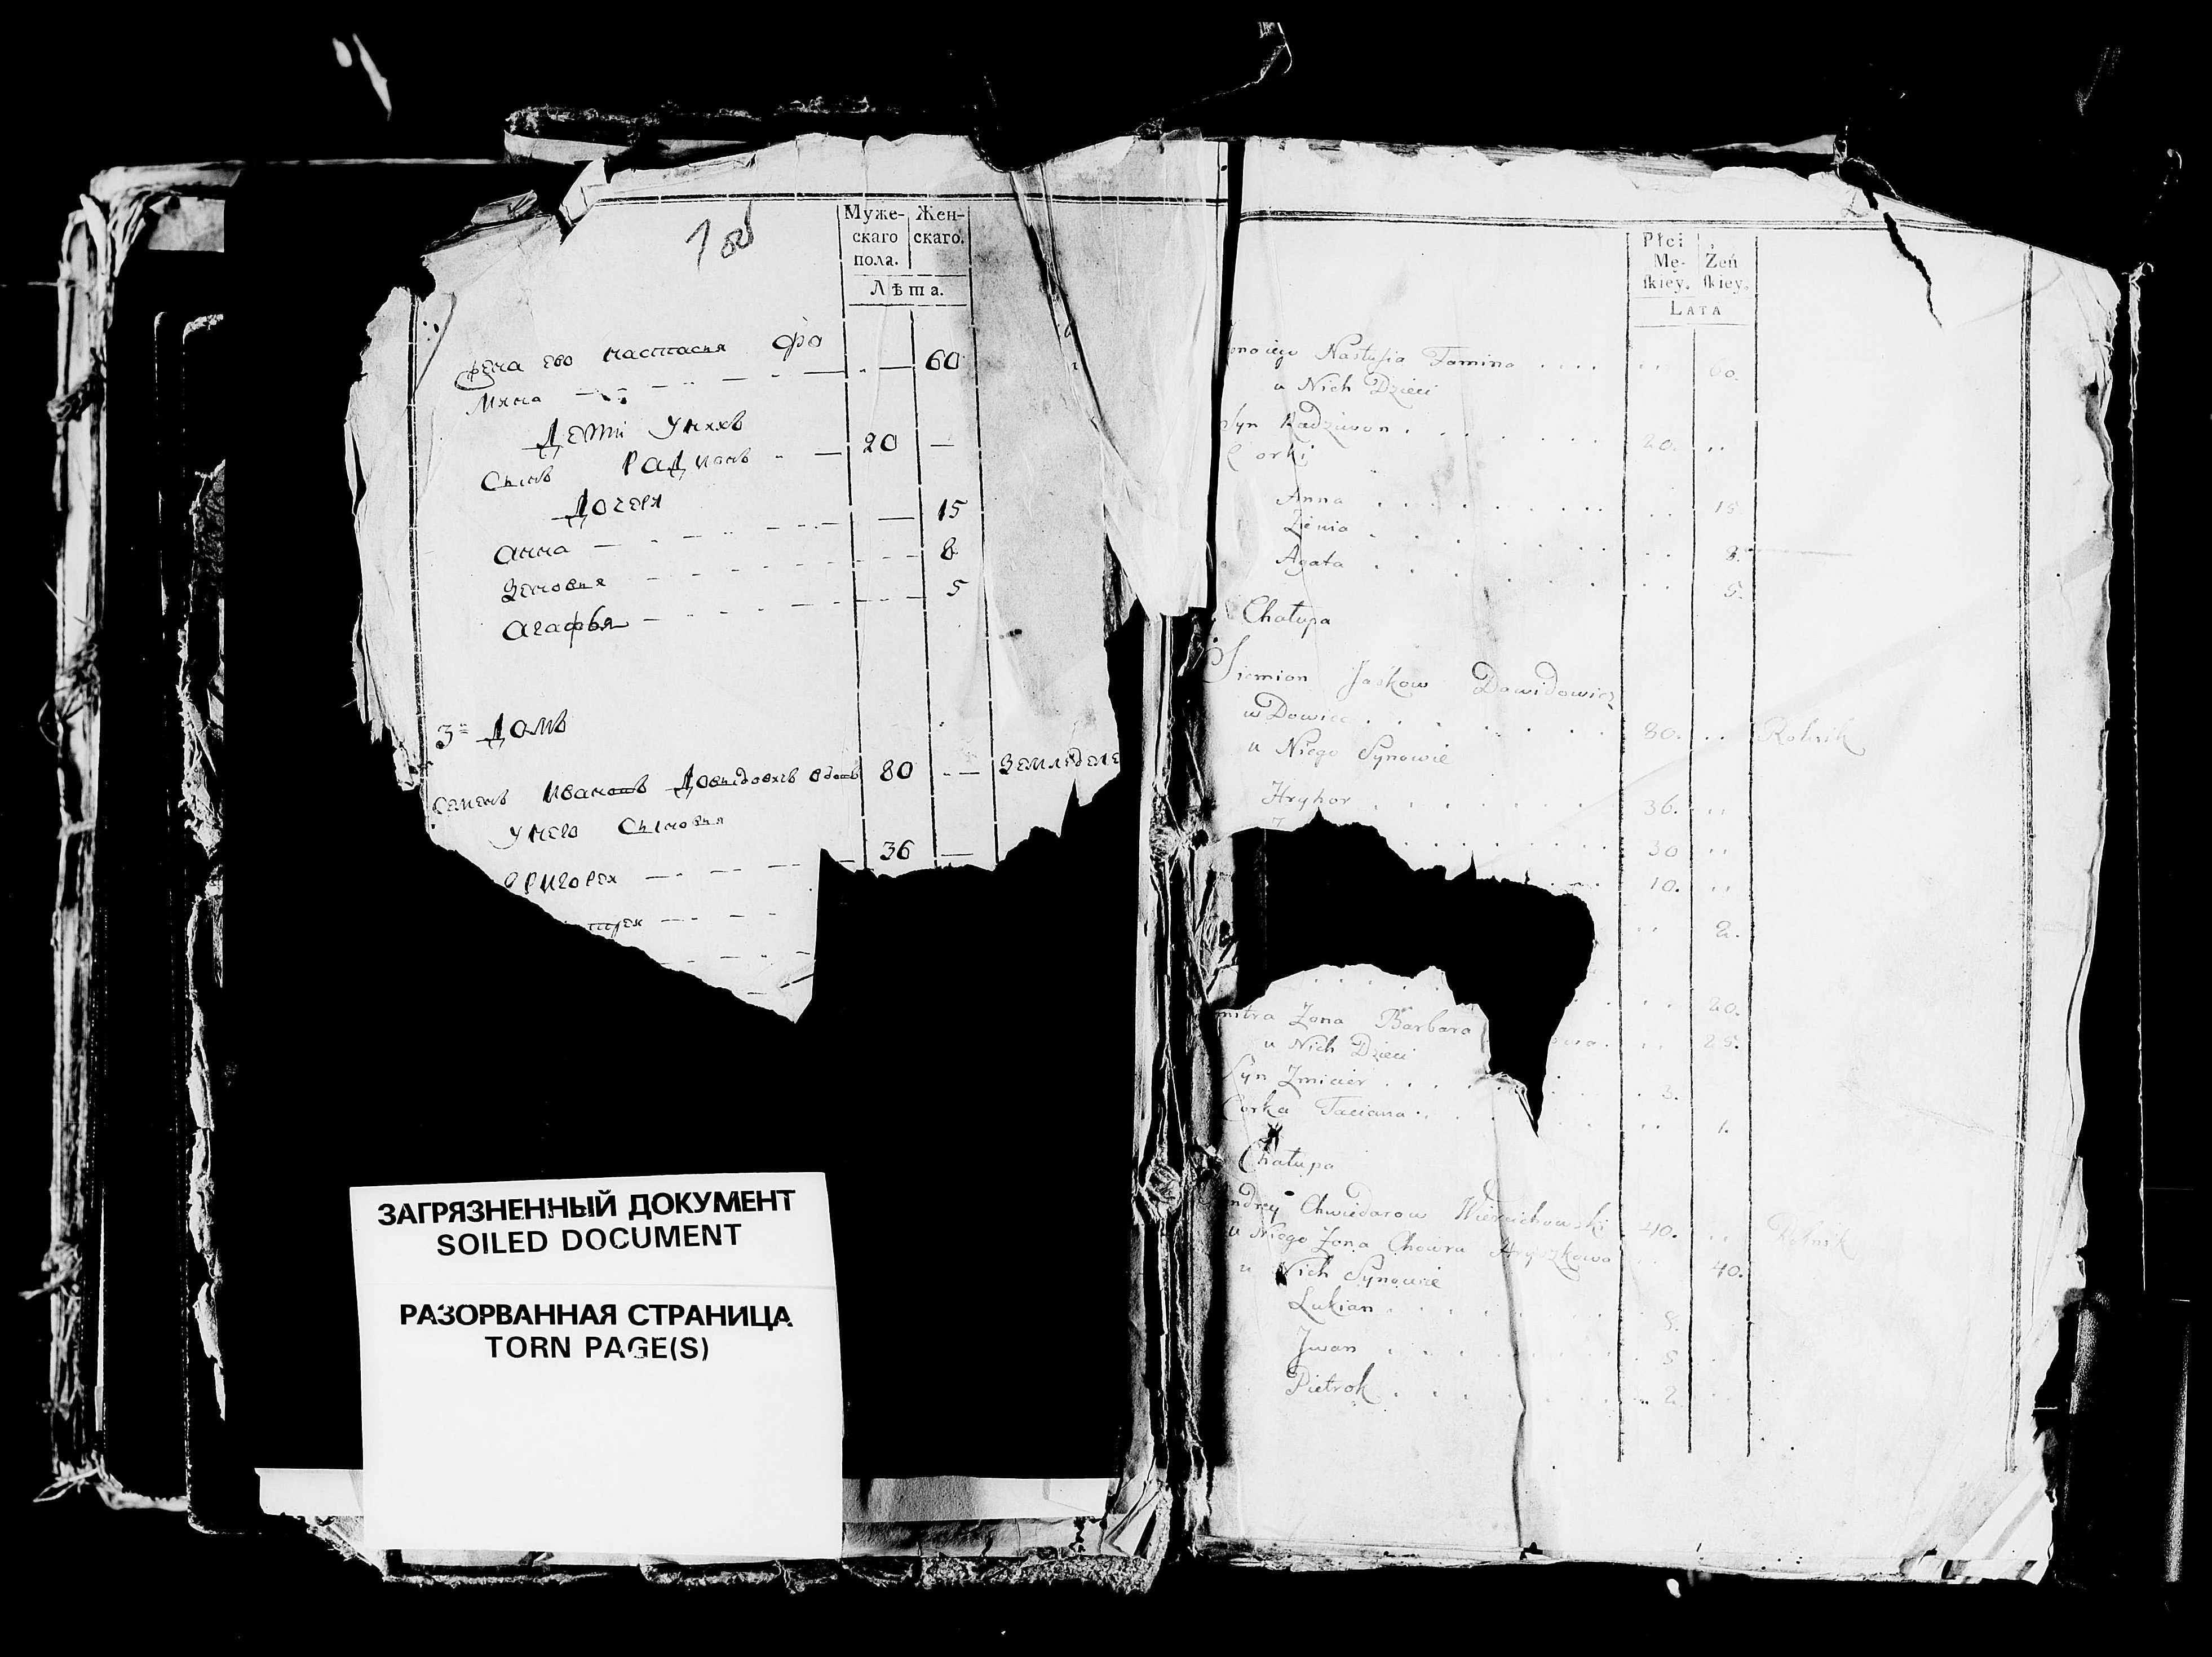 Муже- Жен-
скаго скаго.
пола.
Лѣта.
жена ево настасия фо
мина 60
Дети у нихъ
Сынъ Радионъ 20 —
Дочеря
анна — 15
Зеновия 8
агафья 5
3= Домъ
Семенъ Иванавъ Довидовичъ вдовъ 80 — Земледеле
У него Сыновья
григорей 36 —
Płci
Mę- Żeń
skiey. skiey.
LATA
ona iego Nastysia Tamina .... .. 60.
u Nich Dzieci
Syn Radziwon . 20. ..
Corki
Anna .. 15
Zienia .. 8.
Agata .. 5.
Chałupa
Siemion Jaśkow Dawidowicz
wDowiec 80. .. Rolnik
u Niego Synowie
Hryhor 36. ..
30 ..
10. ..
.. 2.
.. 20.
mitra Żona Barbara owa. .. 25.
u Nich Dzieci
Syn Zmicier . 3.
Corka Taciana . .. 1.
Chałupa
ndrey Chwiedarow Wierzichowski 40. .. Rolnik
u Niego Żona Chowra Hryszkowa .. 40.
u Nich Synowie
Lukian 8.
Jwan 5 ..
Pietrok 2 ..
ЗАГРЯЗНЕННЫЙ ДОКУМЕНТ
SOILED DOCUMENT
РАЗОРВАННАЯ СТРАНИЦА
TORN PAGE(S)